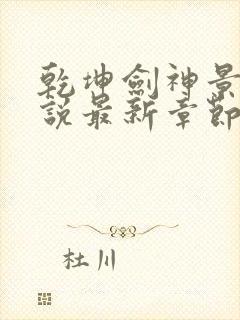 乾坤劍神景
說最新章節
杜川